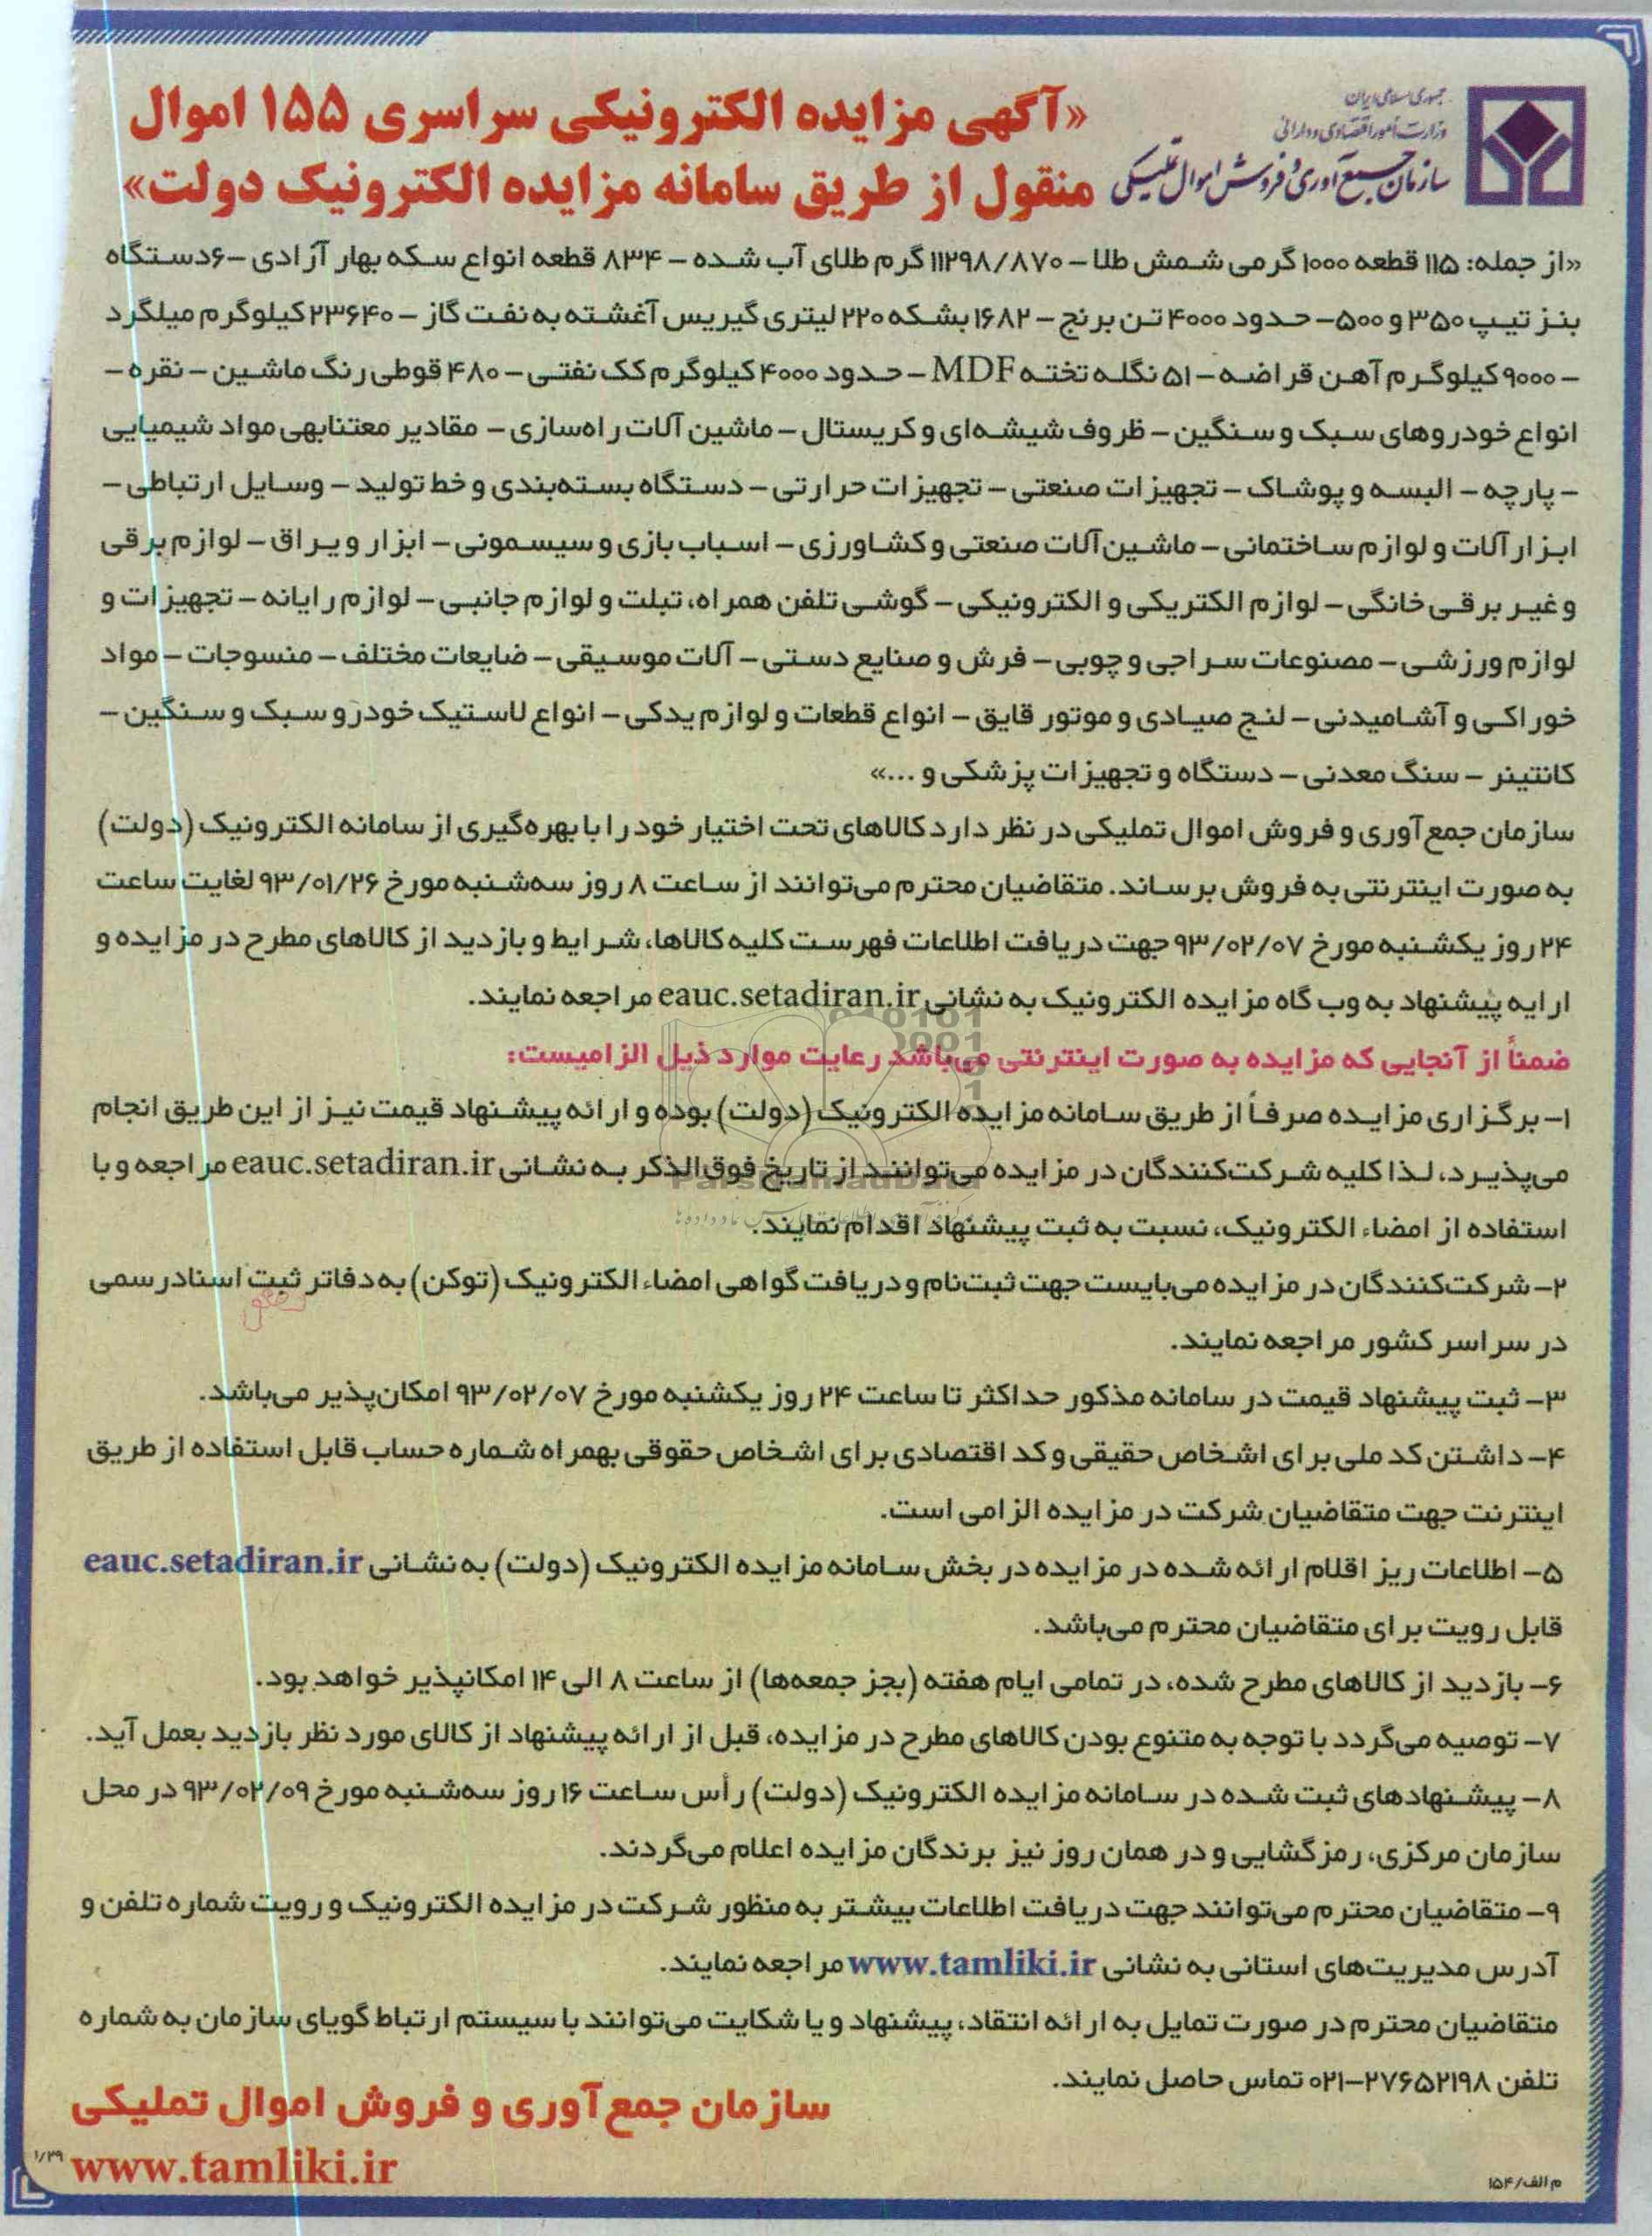 جمهوری اسلامی ایران
وزارت امور اقتصادی و دارائی
سازمان جمع آوری و فروش اموال تملیکی
«آگهی مزایده الکترونیکی سراسری ۱۵۵ اموال
منقول از طریق سامانه مزایده الکترونیک دولت»
«از جمله: ۱۱۵ قطعه ۱۰۰۰ گرمی شمش طلا – ۱۱۲۹۸/۸۷۰ گرم طلای آب شده – ۸۳۴ قطعه انواع سکه بهار آزادی –۶دستگاه
بنز تیپ ۳۵۰ و ۵۰۰– حدود ۴۰۰۰ تن برنج – ۱۶۸۲ بشکه ۲۲۰ لیتری گیریس آغشته به نفت گاز – ۲۳۶۴۰ کیلوگرم میلگرد
– ۹۰۰۰ کیلوگرم آهن قراضه – ۵۱ نگله تخته MDF – حدود ۴۰۰۰ کیلوگرم کک نفتی – ۴۸۰ قوطی رنگ ماشین – نقره –
انواع خودروهای سبک و سنگین – ظروف شیشه‌ای و کریستال – ماشین آلات راه‌سازی – مقادیر معتنابهی مواد شیمیایی
– پارچه – البسه و پوشاک – تجهیزات صنعتی – تجهیزات حرارتی – دستگاه بسته‌بندی و خط تولید – وسایل ارتباطی –
ابزارآلات و لوازم ساختمانی – ماشین‌آلات صنعتی و کشاورزی – اسباب بازی و سیسمونی – ابزار و یراق – لوازم برقی
و غیر برقی خانگی – لوازم الکتریکی و الکترونیکی – گوشی تلفن همراه، تبلت و لوازم جانبی – لوازم رایانه – تجهیزات و
لوازم ورزشی – مصنوعات سراجی و چوبی – فرش و صنایع دستی – آلات موسیقی – ضایعات مختلف – منسوجات – مواد
خوراکی و آشامیدنی – لنج صیادی و موتور قایق – انواع قطعات و لوازم یدکی – انواع لاستیک خودرو سبک و سنگین –
کانتینر – سنگ معدنی – دستگاه و تجهیزات پزشکی و ...»
سازمان جمع‌آوری و فروش اموال تملیکی در نظر دارد کالاهای تحت اختیار خود را با بهره‌گیری از سامانه الکترونیک (دولت)
به صورت اینترنتی به فروش برساند. متقاضیان محترم می‌توانند از ساعت ۸ روز سه‌شنبه مورخ ۹۳/۰۱/۲۶ لغایت ساعت
۲۴ روز یکشنبه مورخ ۹۳/۰۲/۰۷ جهت دریافت اطلاعات فهرست کلیه کالاها، شرایط و بازدید از کالاهای مطرح در مزایده و
ارایه پیشنهاد به وب گاه مزایده الکترونیک به نشانی eauc.setadiran.ir مراجعه نمایند.
ضمناً از آنجایی که مزایده به صورت اینترنتی می‌باشد رعایت موارد ذیل الزامیست:
۱– برگزاری مزایده صرفاً از طریق سامانه مزایده الکترونیک (دولت) بوده و ارائه پیشنهاد قیمت نیز از این طریق انجام
می‌پذیرد، لذا کلیه شرکت‌کنندگان در مزایده می‌توانند از تاریخ فوق‌الذکر به نشانی eauc.setadiran.ir مراجعه و با
استفاده از امضاء الکترونیک، نسبت به ثبت پیشنهاد اقدام نمایند.
۲– شرکت‌کنندگان در مزایده می‌بایست جهت ثبت‌نام و دریافت گواهی امضاء الکترونیک (توکن) به دفاتر ثبت اسنادرسمی
در سراسر کشور مراجعه نمایند.
۳– ثبت پیشنهاد قیمت در سامانه مذکور حداکثر تا ساعت ۲۴ روز یکشنبه مورخ ۹۳/۰۲/۰۷ امکان‌پذیر می‌باشد.
۴– داشتن کد ملی برای اشخاص حقیقی و کد اقتصادی برای اشخاص حقوقی بهمراه شماره حساب قابل استفاده از طریق
اینترنت جهت متقاضیان شرکت در مزایده الزامی است.
۵– اطلاعات ریز اقلام ارائه شده در مزایده در بخش سامانه مزایده الکترونیک (دولت) به نشانی eauc.setadiran.ir
قابل رویت برای متقاضیان محترم می‌باشد.
۶– بازدید از کالاهای مطرح شده، در تمامی ایام هفته (بجز جمعه‌ها) از ساعت ۸ الی ۱۴ امکانپذیر خواهد بود.
۷– توصیه می‌گردد با توجه به متنوع بودن کالاهای مطرح در مزایده، قبل از ارائه پیشنهاد از کالای مورد نظر بازدید بعمل آید.
۸– پیشنهادهای ثبت شده در سامانه مزایده الکترونیک (دولت) رأس ساعت ۱۶ روز سه‌شنبه مورخ ۹۳/۰۲/۰۹ در محل
سازمان مرکزی، رمزگشایی و در همان روز نیز برندگان مزایده اعلام می‌گردند.
۹– متقاضیان محترم می‌توانند جهت دریافت اطلاعات بیشتر به منظور شرکت در مزایده الکترونیک و رویت شماره تلفن و
آدرس مدیریت‌های استانی به نشانی www.tamliki.ir مراجعه نمایند.
متقاضیان محترم در صورت تمایل به ارائه انتقاد، پیشنهاد و یا شکایت می‌توانند با سیستم ارتباط گویای سازمان به شماره
تلفن ۲۷۶۵۲۱۹۸–۰۲۱ تماس حاصل نمایند.
سازمان جمع‌آوری و فروش اموال تملیکی
www.tamliki.ir
۱/۲۹
م الف/۱۵۴